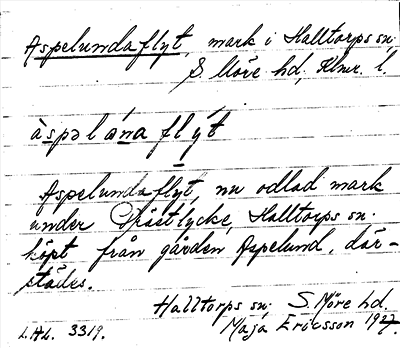 Aspelundaflyt, mark i Halltorps sn.
S Möre hd, Klmr. l.
àspəlána flýt
Aspelundaflyt, nu odlad mark
under Prästlycke, Halltorps sn.
köpt från gården Aspelund, där-
städes.
Halltorps sn. S. Möre hd.
L.A.L. 3319. Maja Ericsson 1927.